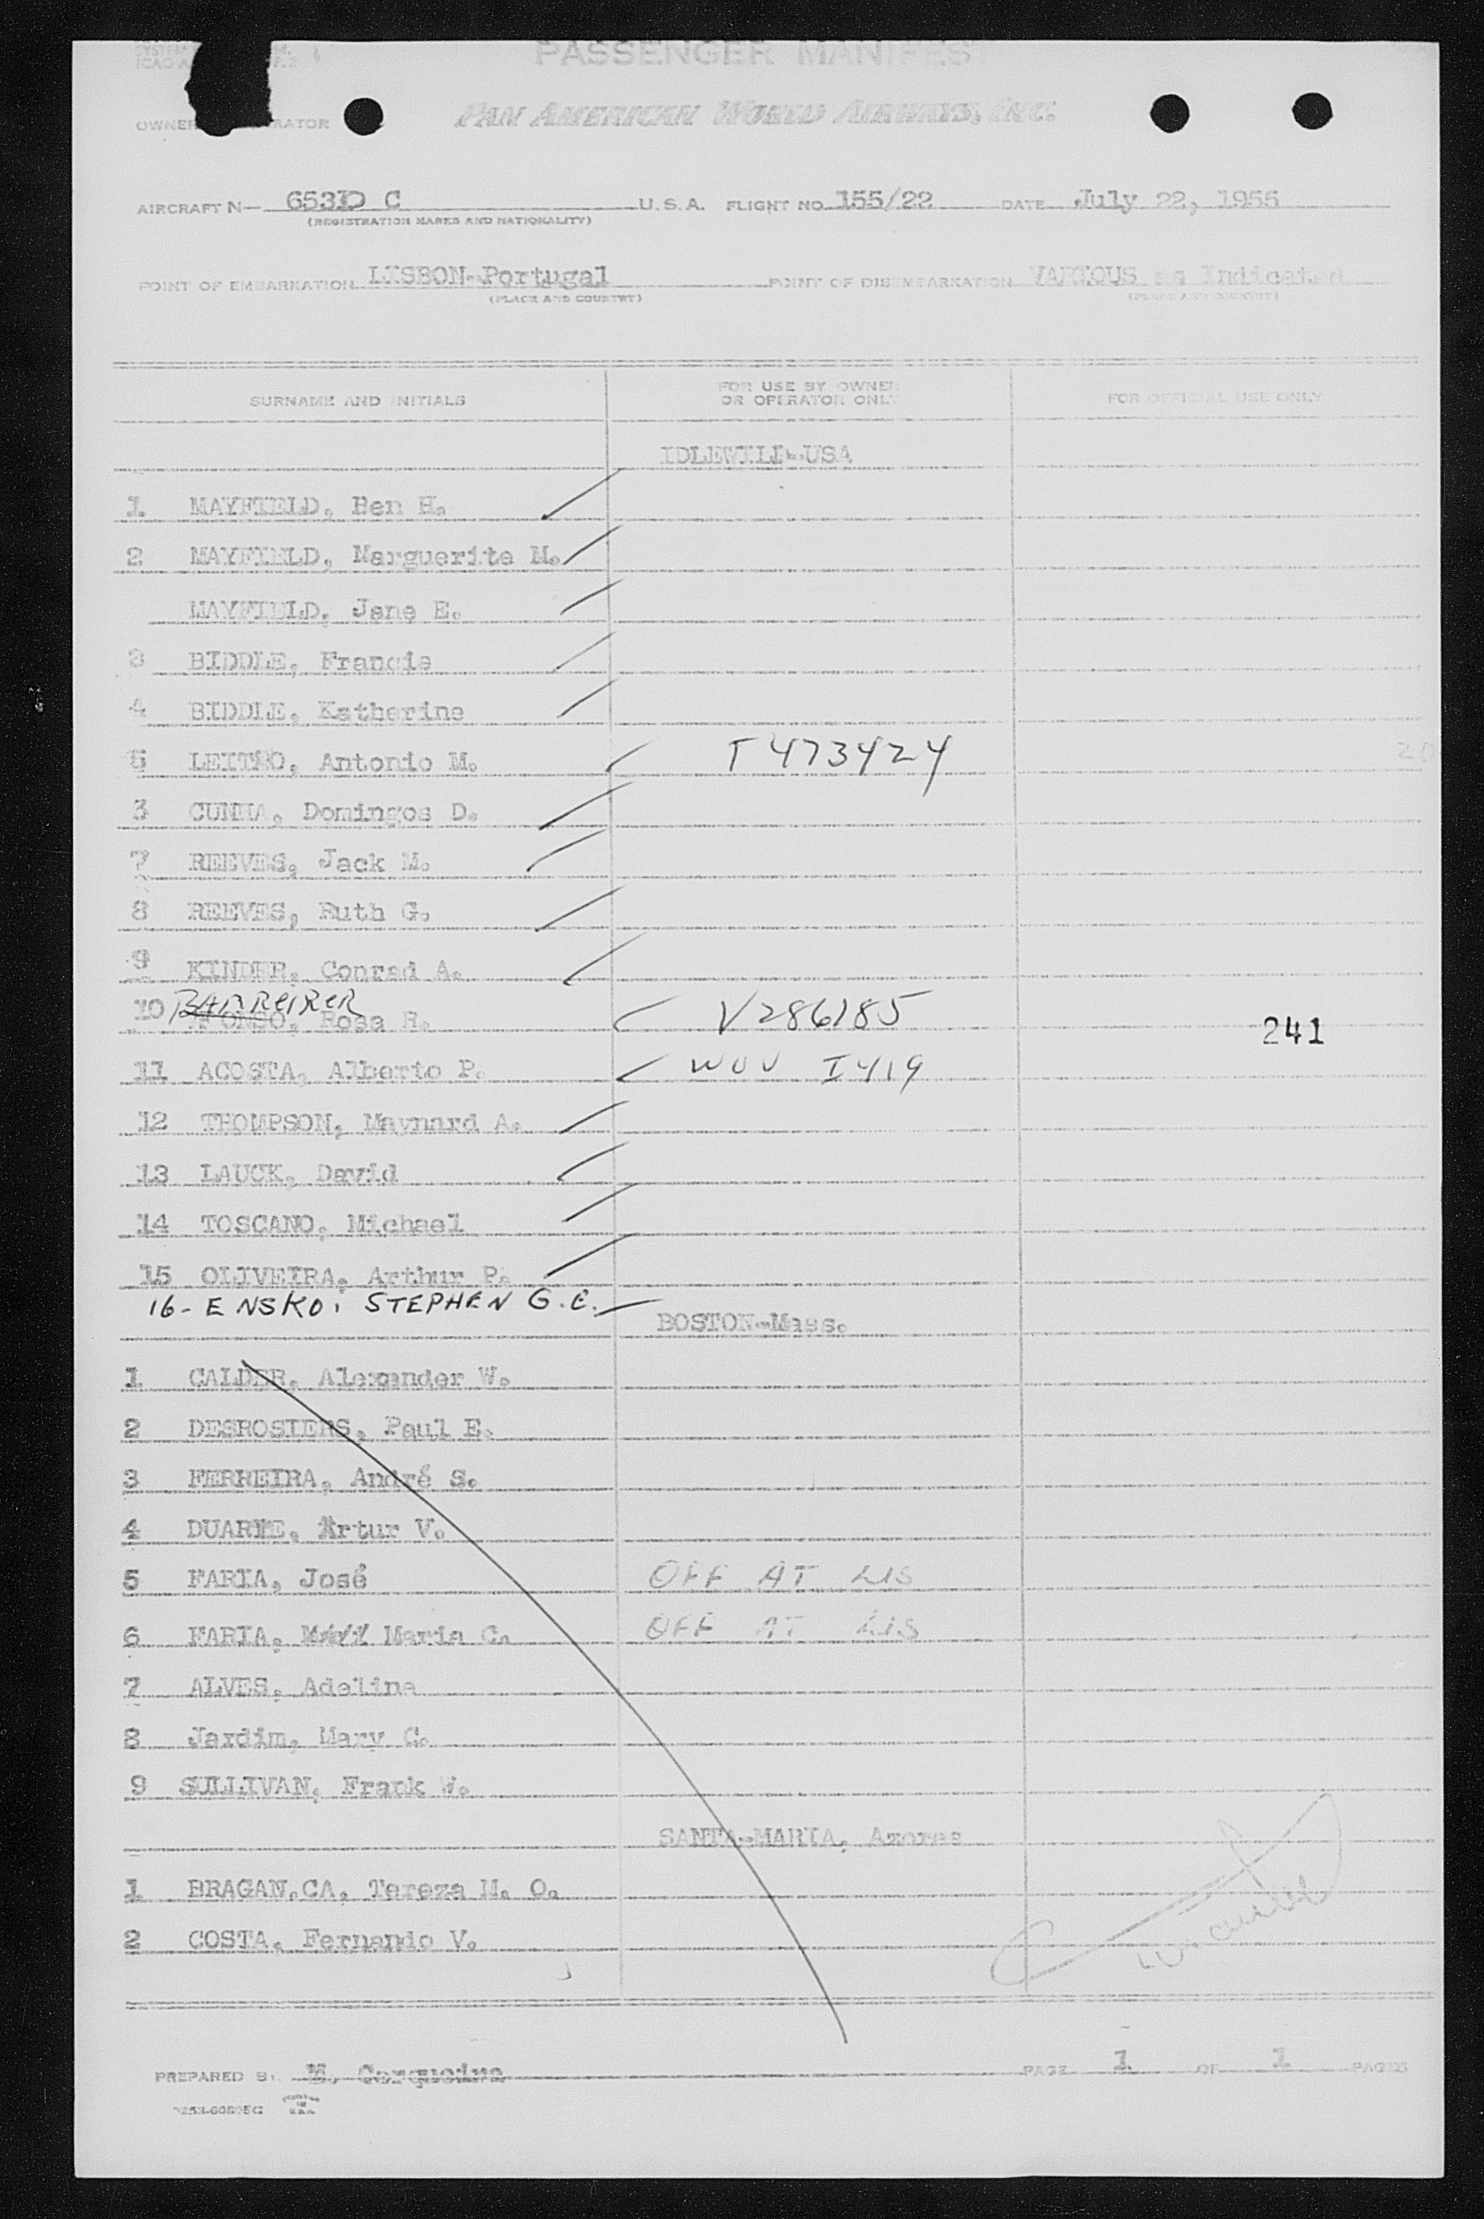 PASSENGER MANIFEST
OWNER RATOR PAN AMERICAN WORLD AIRWAYS, INC.
AIRCRAFT N— 6531D C U.S.A. FLIGHT NO 155/22 DATE July 22, 1955
(REGISTRATION MARKS AND NATIONALITY)
POINT OF EMBARKATION LISBON-Portugal POINT OF DISEMBARKATION VARIOUS as Indicated
(PLACE AND COUNTRY) (PLACE AND COUNTRY)
SURNAME AND INITIALS FOR USE BY OWNER OR OPERATOR ONLY FOR OFFICIAL USE ONLY
IDLEWILD-USA
1 MAYFIELD, Ben H.
2 MAYFIELD, Marguerite M.
MAYFIELD, Jane E.
3 BIDDLE, Francis
4 BIDDLE, Katherine
5 Antonio M. T473424
CUNHA, Domingos D.
7 REEVES, Jack M.
8 REEVES, Ruth G.
9 KINDER, Conrad A.
10 BARREIRER
AFONSO, Rosa R. V286185 241
11 ACOSTA, Alberto P. I419
12 THOMPSON, Maynard A.
13 LAUCK, David
14 TOSCANO, Michael
15 OLIVEIRA, Arthur P.
16- ENSKO, STEPHEN G.C.
BOSTON-Mass.
1 CALDER, Alexander W.
2 DESROSIERS, Paul E.
3 FERREIRA, André S.
4 DUARTE, Artur V.
5 FARIA, José OFF AT LIS
6 FARIA, Maria C. OFF AT LIS
7 ALVES, Adelina
8 Jardim, Mary C.
9 SULLIVAN, Frank W.
SANTA-MARIA, Azores
1 BRAGAN,CA, Tereza M. O.
2 COSTA, Fernando V.
PREPARED BY M. Cerqueira PAGE 1 OF 1 PAGES